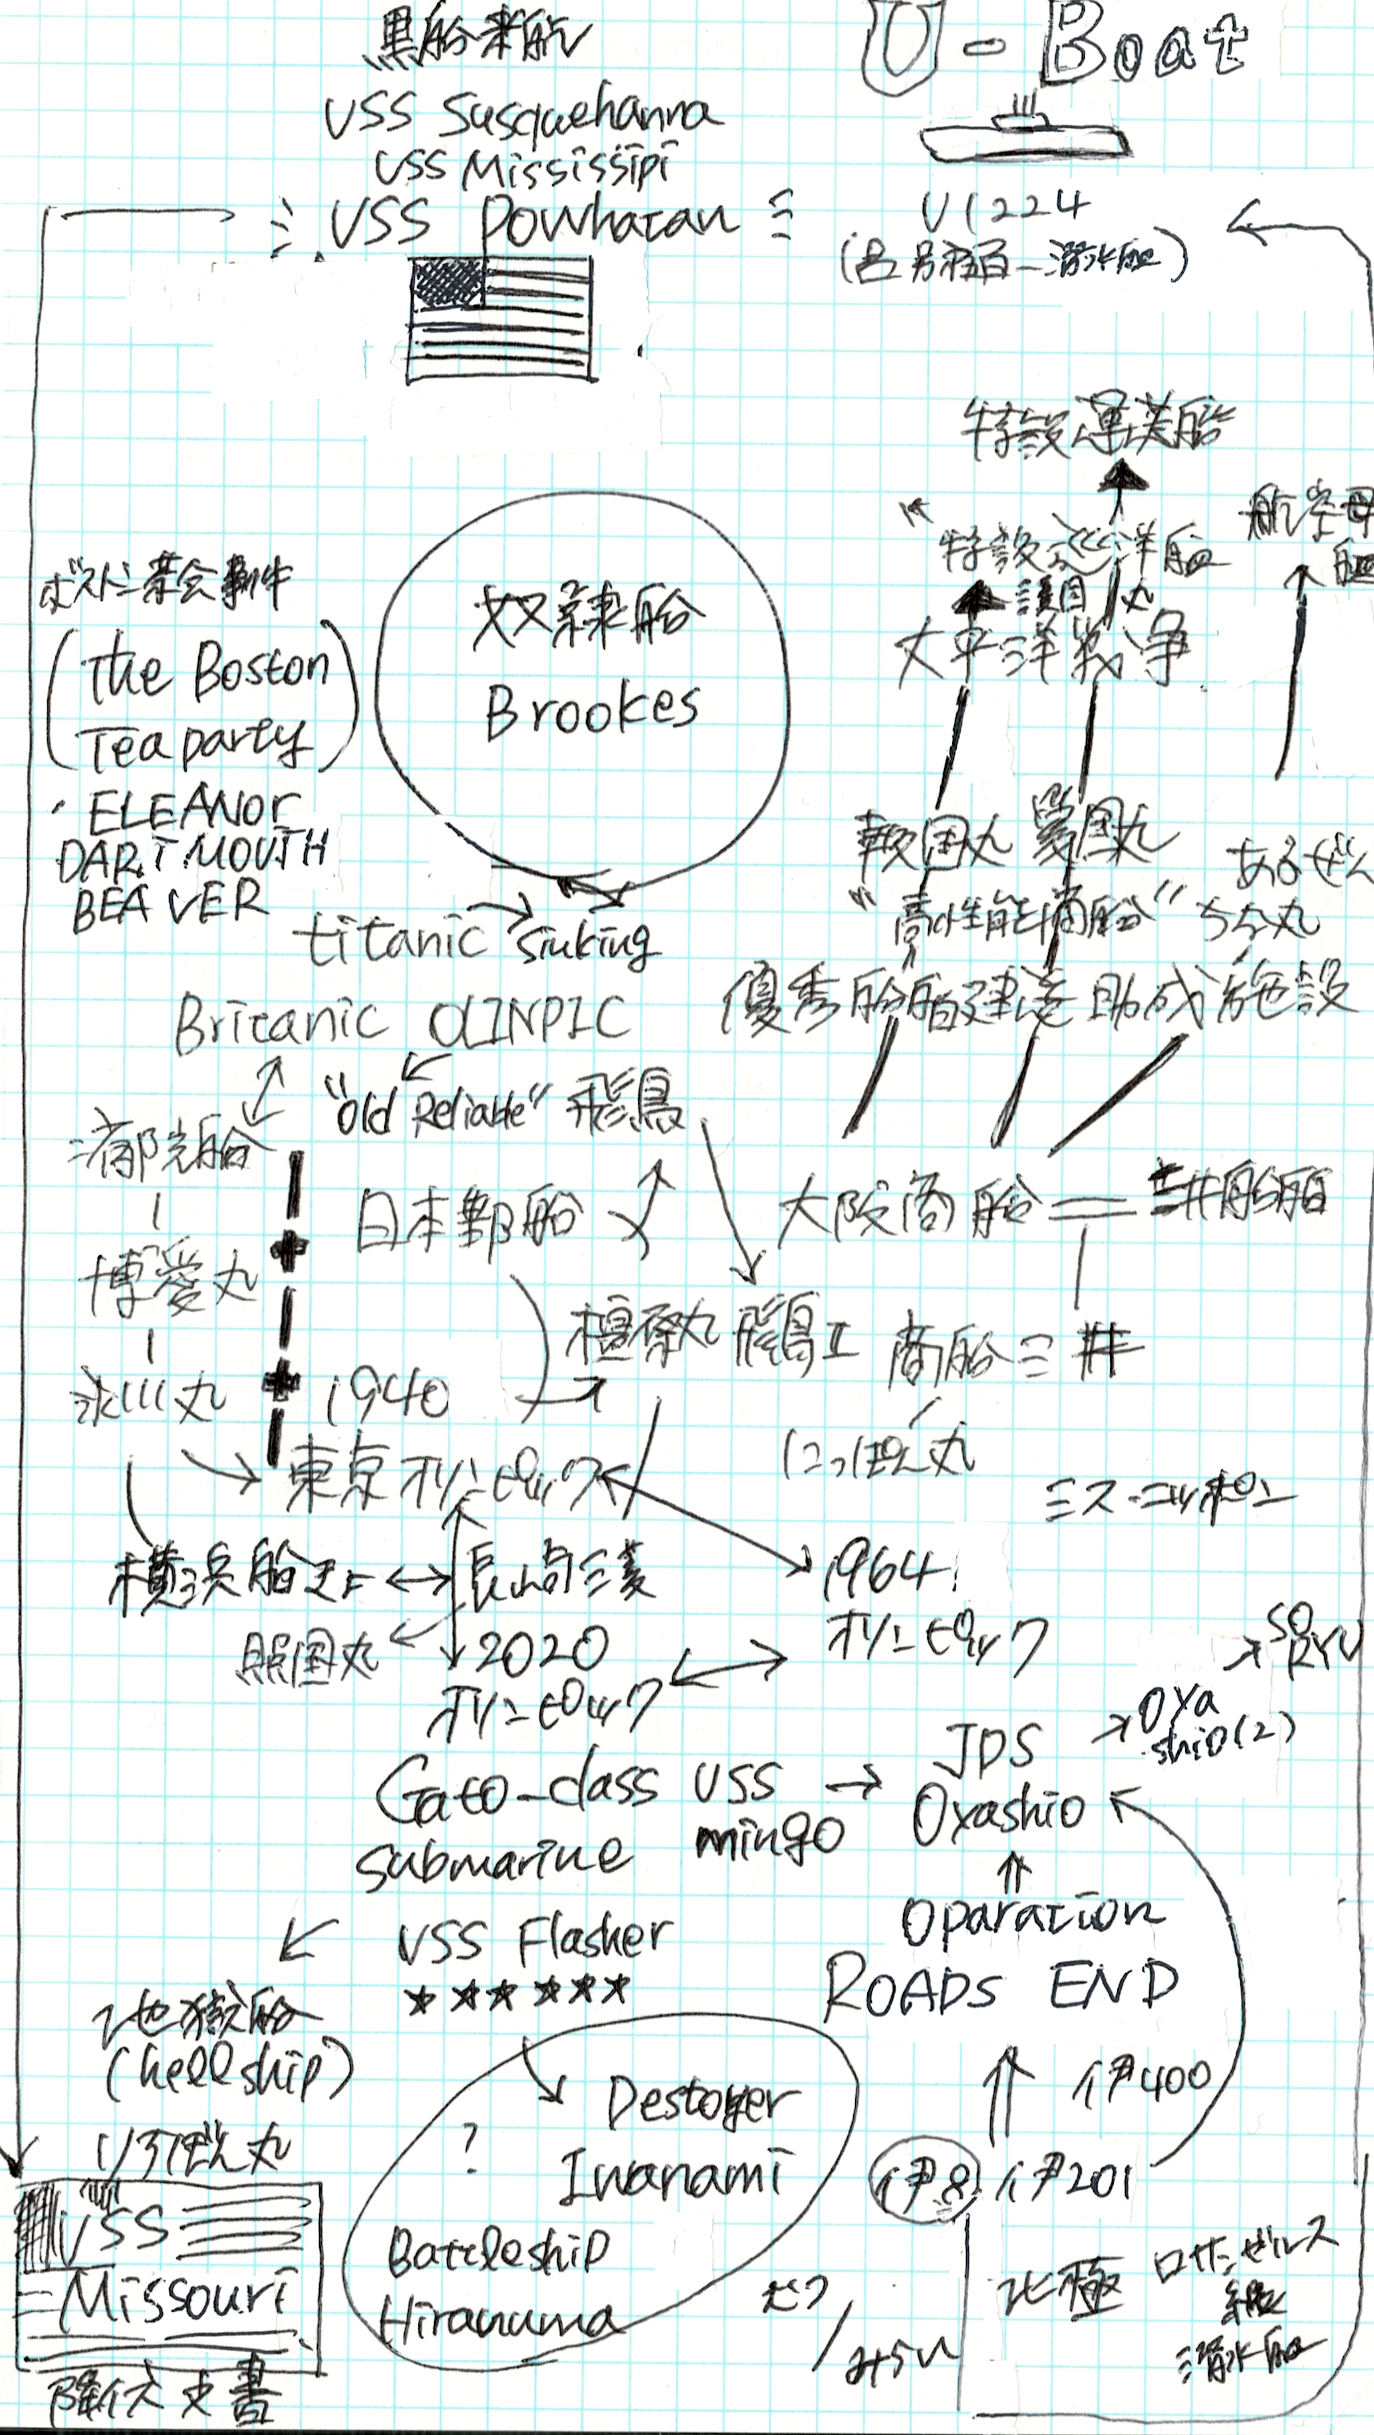 黒船来航
USS Susquehanna
USS Mississipi
USS Powhatan
U-Boat
U1224
(呂号第五百一潜水艦)
特設運送船
特設巡洋艦
護国丸
航空母艦
太平洋戦争
ボストン茶会事件
(The Boston
Tea party)
・ELEANOr
DARTMOUTH
BEAVER
奴隷船
Brookes
報国丸 愛国丸
あるぜん
ちな丸
"高性能商船"
優秀船舶建造助成施設
titanic sinking
Britanic OLINPIC
"Old Reliable" 飛鳥
病院船
日本郵船
大阪商船 = 三井船舶
博愛丸
橿原丸 飛鳥II 商船三井
氷川丸
1940
東京オリンピック
にっぽん丸
ミス・ニッポン
横浜船渠
長崎三菱
1964
オリンピック
照国丸
2020
オリンピック
SORYU
Oyashio(2)
JDS
Oyashio
Gato-class USS
submarine mingo
Oparation
ROADS END
USS Flasher
★★★★★★
地獄船
(hell ship)
伊400
Destoyer
Iwanami
?
Battleship
Hiranuma
伊8 伊201
USS
Missouri
降伏文書
みらい
北極
ロサンゼルス
級
潜水艦